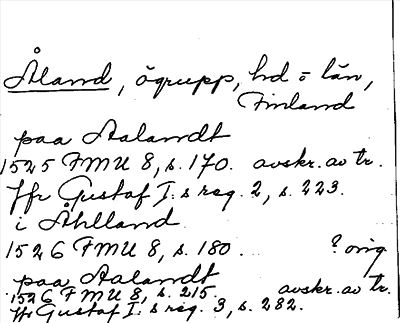 Åland, ögrupp, hd o län,
Finland
paa Aalandt
1525 FMU 8, s. 170. avskr. av tr.
Jfr Gustaf I:s reg. 2, s. 223.
i Åhlland.
1526 FMU 8, s. 180. ? orig
paa Aalandt
1526 FMU 8, s. 215 avskr. av tr.
Jfr Gustaf I:s reg. 3, s. 282.